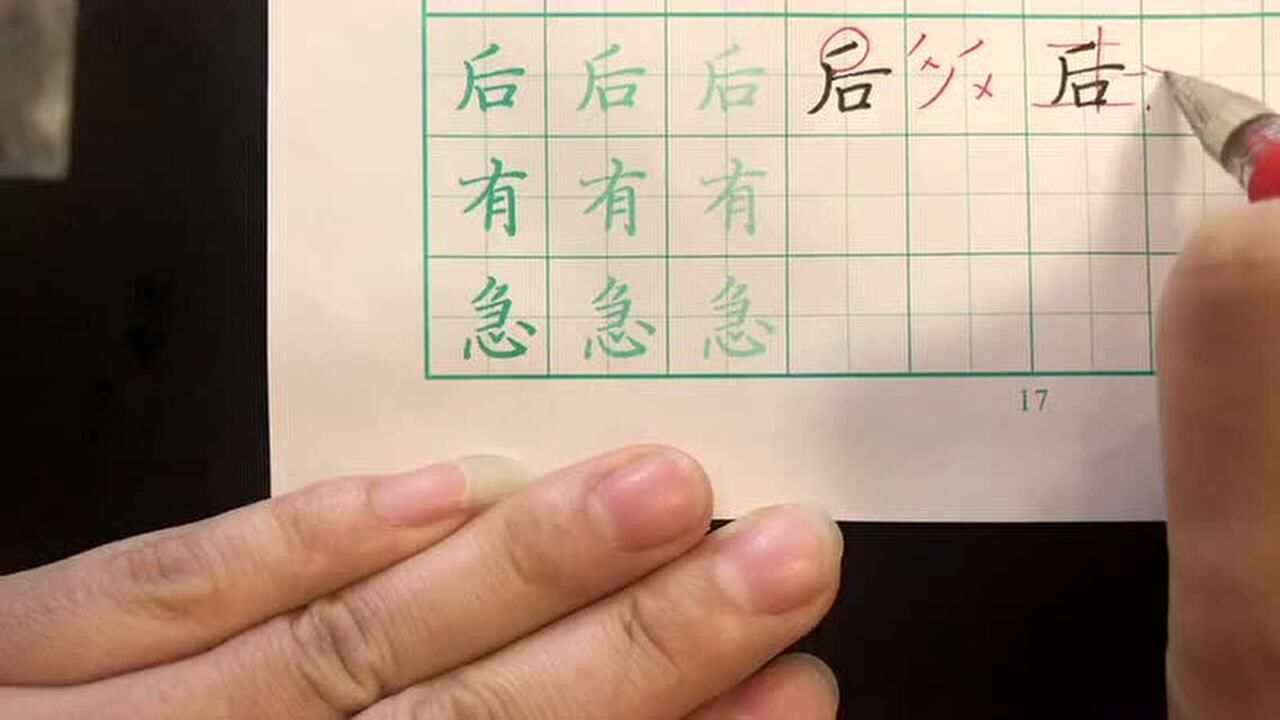 后 后 后 后 后
有 有 有
急 急 急
17